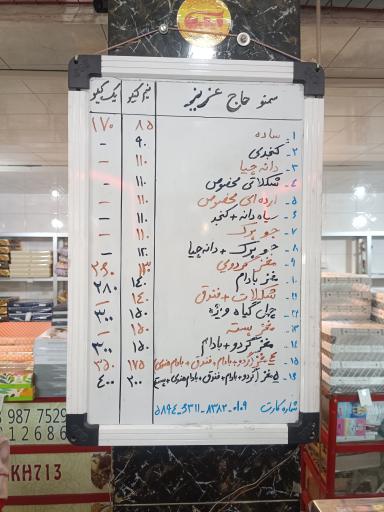 سمنو حاج عزیز نیم کیلو یک کیلو
۱. ساده ۸۵ ۱۷۰
۲. کنجدی ۹۰ -
۳. دانه چیا ۱۱۰ -
۴. شکلاتی مخصوص ۱۱۰ -
۵. ارده ای مخصوص ۱۱۰ -
۶. سیاه دانه + کنجد ۱۱۰ -
۷. جو پرک ۱۱۰ -
۸. جو پرک + دانه چیا ۱۲۰ -
۹. مغز گردوی ۱۳۰ ۲۶۰
۱۰. مغز بادام ۱۴۰ ۲۸۰
۱۱. شکلات + فندق ۱۴۰ -
۱۲. چهل گیاه ویژه ۱۵۰ ۳۰۰
۱۳. مغز پسته ۱۵۰ -
۱۴. مغز گردو + بادام ۱۵۰ ۳۰۰
۱۵. ۴ مغز (گردو + بادام + فندق + بادام هندی) ۱۷۵ ۳۵۰
۱۶. ۵ مغز (گردو + بادام + فندق + بادام هندی + پسته) ۲۰۰ ۴۰۰
شماره کارت
987 7529
12686
KH713